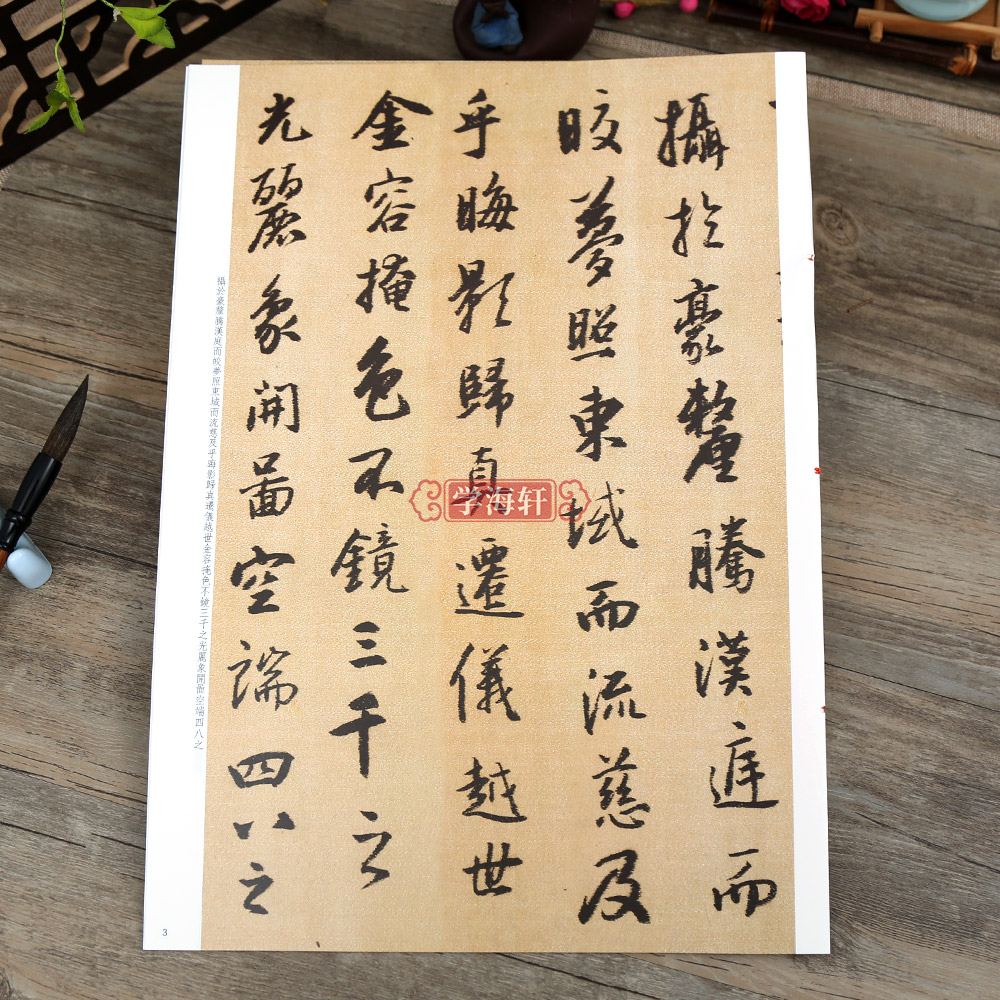 攝於豪釐騰漢庭而
皎夢照東域而流慈及
乎晦影歸真遷儀越世
金容掩色不鏡三千之
光麗象開啚空端四八之
攝於豪釐騰漢庭而皎夢照東域而流慈及乎晦影歸真遷儀越世金容掩色不鏡三千之光麗象開啚空端四八之
学海轩
3